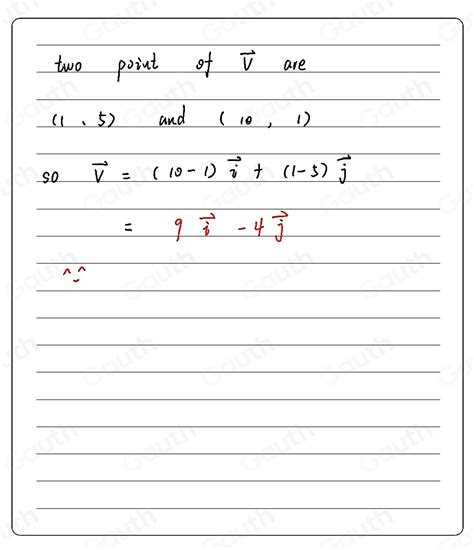 two point of v⃗ are
(1、5) and (10, 1)
so v⃗ = (10-1) i⃗ + (1-5) j⃗
= 9 i⃗ - 4 j⃗
^ᵕ^
Gauth